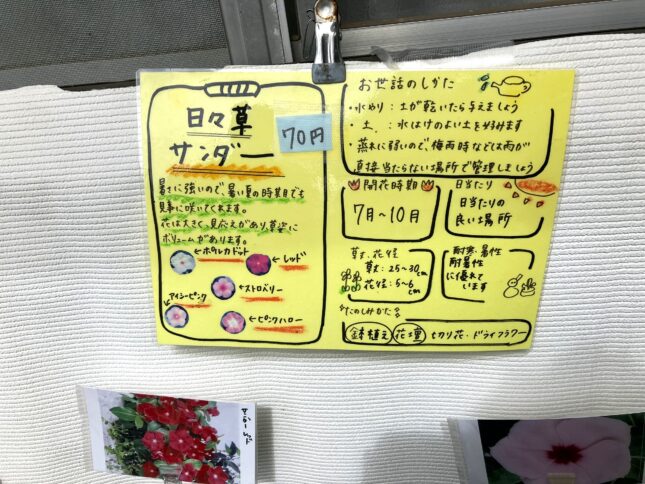 日々草
サンダー
70円
暑さに強いので、暑い夏の時期でも
見事に咲いてくれます。
花は大きく、見応えがあり、草姿に
ボリュームがあります。
←ポルカドット
←レッド
←ストロベリー
アイシーピンク
←ピンクハロー
お世話のしかた
・水やり：土が乾いたら与えましょう
・土：水はけのよい土を好みます
・蒸れに弱いので、梅雨時などは雨が
直接当たらない場所で管理しましょう
開花時期
7月〜10月
日当たり
日当たりの
良い場所
草丈、花径
草丈：25〜30cm
花径：5〜6cm
耐寒・暑性
耐暑性
に優れて
います
たのしみかた
鉢植え 花壇 切り花・ドライフラワー